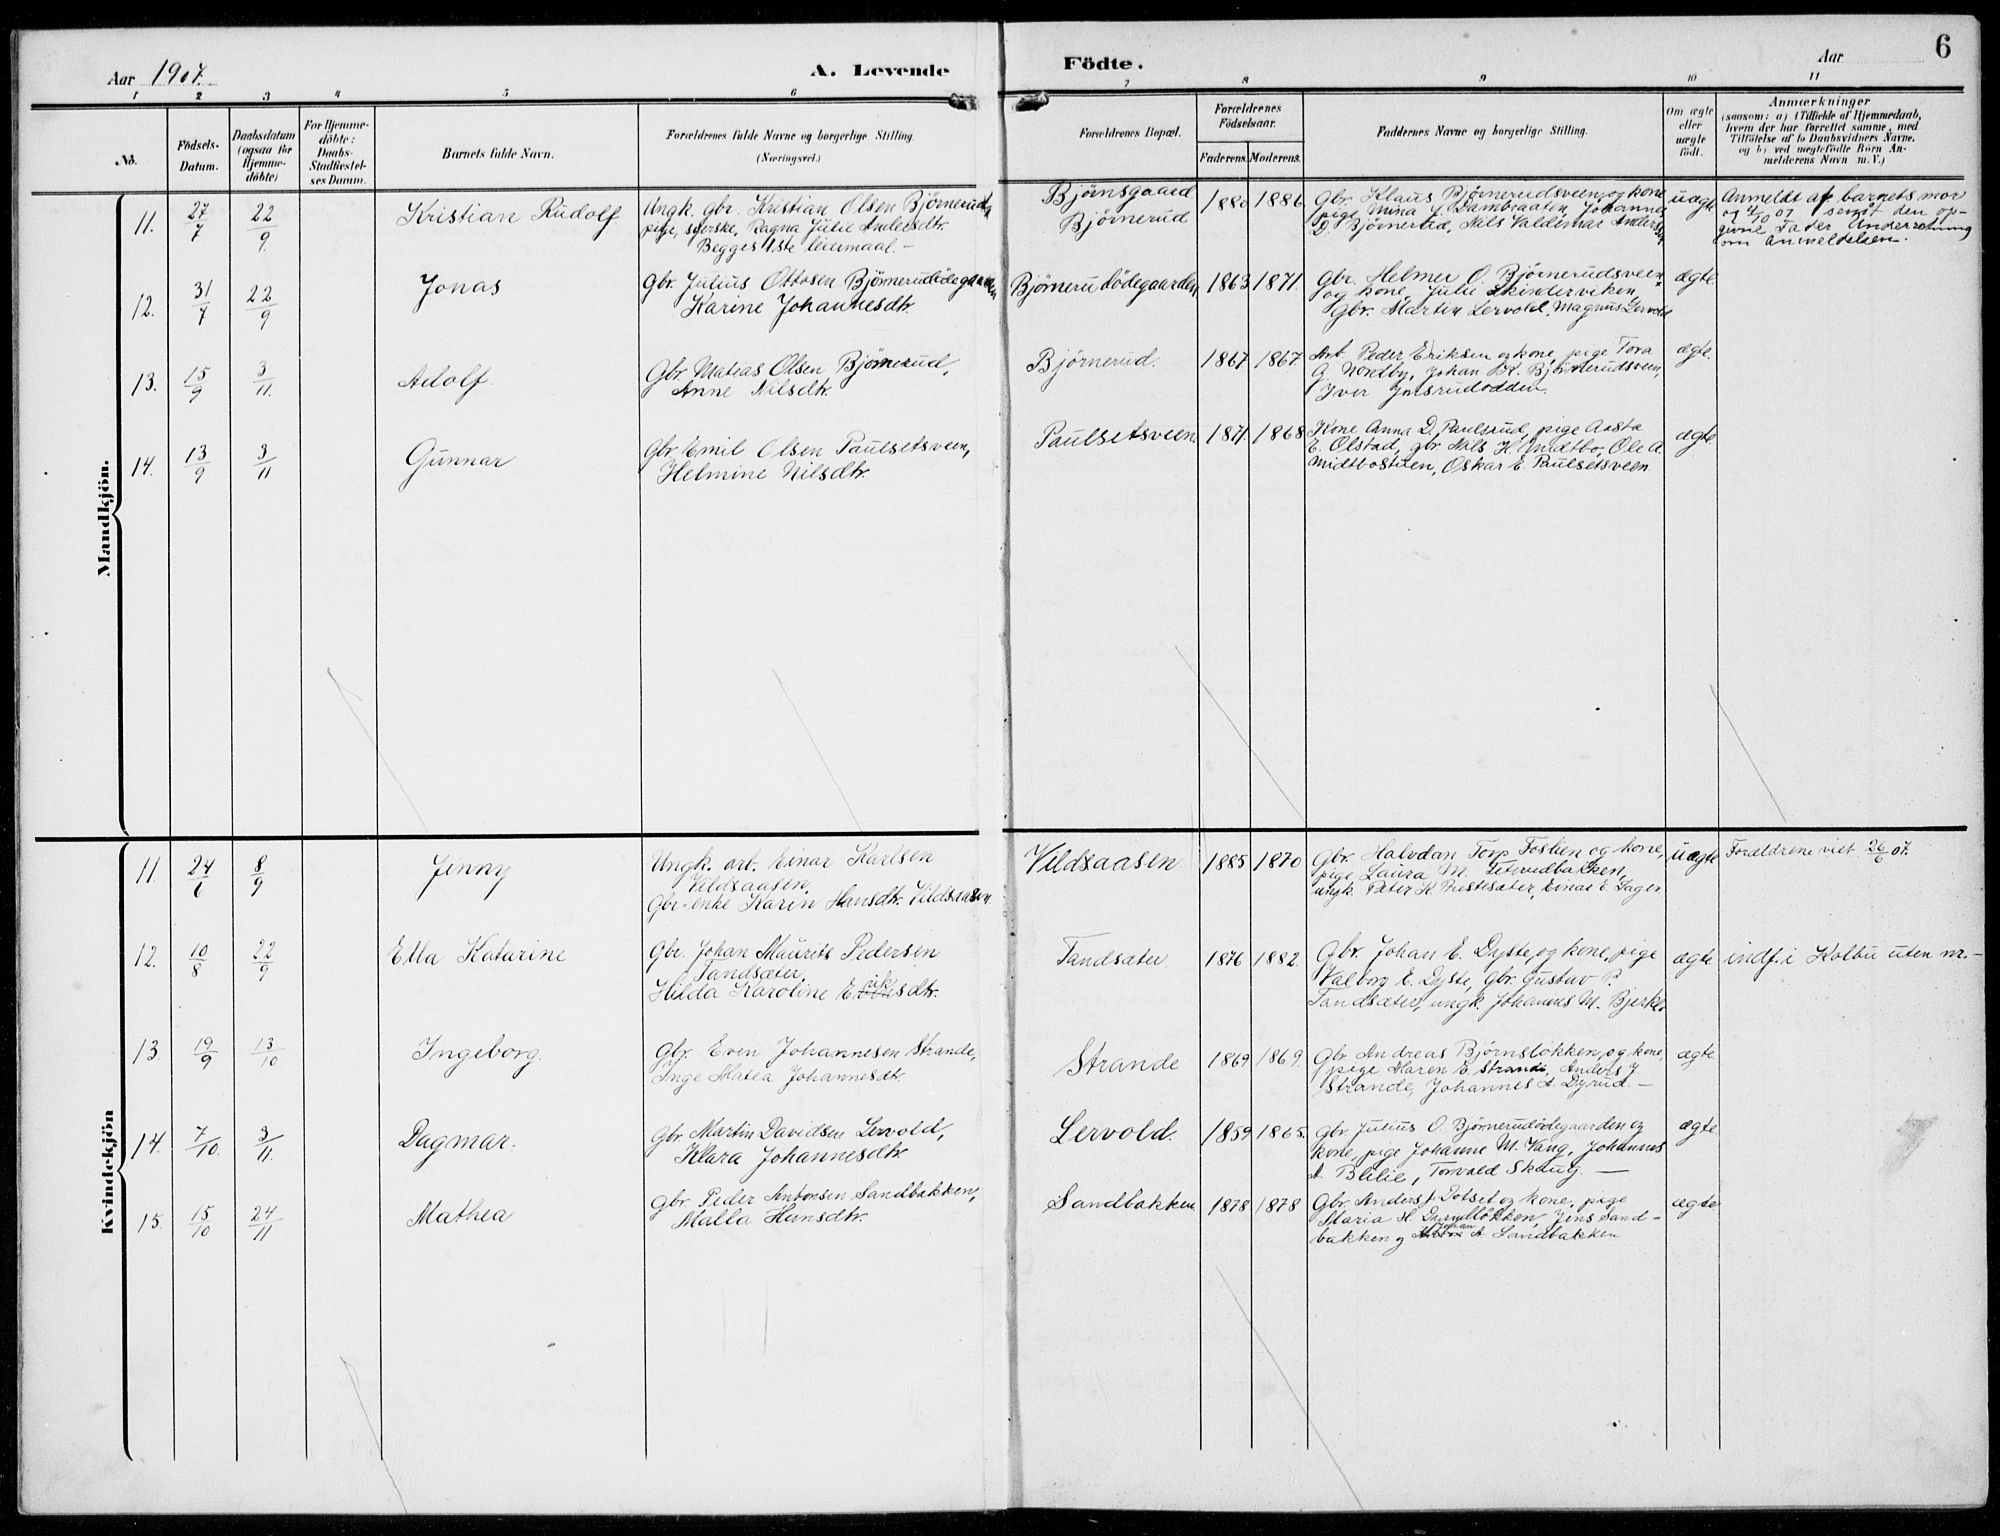 Aar 1907.
A. Levende
Födte.
Aar
6
1 2 3 4 5 6 7 8 9 10 11
No.
Födsels-
Datum.
Daabsdatum
(ogsaa for
Hjemme-
döbte)
For Hjemme-
döbte:
Daabs-
Stadfæstel-
ses Datum.
Barnets fulde Navn.
Forældrenes fulde Navne og borgerlige Stilling.
(Næringsvei.)
Forældrenes Bopæl.
Forældrenes
Födselsaar.
Faderens. Moderens.
Faddernes Navne og borgerlige Stilling.
Om ægte
eller
uægte
födt.
Anmærkninger
(saasom: a) i Tilfælde af Hjemmedaab,
hvem der har forrettet samme, med
Tilföielse af to Daabsvidners Navne,
og b) ved uægtefödte Börn An-
melderens Navn m. V.)
Mandkjön.
11. 27/7 22/9 Kristian Rudolf
Ungk. gbr. Kristian Olsen Bjørnerud,
pige, syerske, Ragna Julie Andersdtr.
Begges 1ste leiermaal. -
Bjørnsgaard
Bjørnerud
1886
Gbr. Klaus Bjørnerudsveen og kone,
pige Mina J. Dambraaten, Johannes
D. Bjørnerud, Nils Valdemar Andersen
uægte
Anmeldt af barnets mor
4/10 07 sendt den op-
givne Fader Underretning
om Anmeldelsen.
12. 31/7 22/9 Jonas
Gbr. Julius Ottosen Bjørnerudødegaarden
Karine Johannesdtr.
Bjørnerudødegaarden 1863 1871
Gbr. Helmer O. Bjørnerudsveen
og kone, Julie Skinderviken,
Gbr. Martin Lervold, Magnus Lervold
ægte
13. 15/9 3/11. Adolf.
Gbr. Matias Olsen Bjørnerud,
Anne Nilsdtr.
Bjørnerud. 1867 1867.
Arb. Peder Eriksen og kone, pige Tora
G. Nordby, Johan K. Bjørnerudsveen,
Iver Jensrudodden.
ægte.
14. 13/9 3/11 Gunnar
Gbr. Emil Olsen Paulsetsveen,
Helmine Nilsdtr.
Paulsetsveen 1871. 1868
Kone Anna D. Paulsrud, pige Aasta
E. Olstad, gbr. Nils H. Midtbo, Ole A.
Midtbostuen, Oskar E. Paulsetsveen
ægte
Kvindekjön
11. 24/6 8/9 Jenny
Ungk. arb. Einar Karlsen
Vildsaasen,
Gbr-enke Karin Hansdtr. Vildsaasen.
Vildsaasen 1885 1870
Gbr. Halvdan Torp Foslien og kone,
pige Laura M. Tetevidbakken,
ungk. Peter K. Prestesæter, Einar E. Jager
uægte
Forældrene viet 26/6 07.
12. 10/8 22/9 Ella Katarine
Gbr. Johan Maurits Pedersen
Tandsæter,
Hilda Karoline Eriksdtr.
Tandsæter 1876 1882.
Gbr. Johan E. Dyste og kone, pige
Valborg E. Dyste, Gbr. Gustav P.
Tandsæter, ungk. Johannes M. Bjerke.
ægte
indf. i Kolbu uten nr. -
13. 19/9 13/10 Ingeborg.
Gbr. Even Johannesen Strande,
Inge Matea Johannesdtr.
Strande 1869 1869.
Gbr. Andreas Bjørnsløkken og kone,
pige Maren E. Strande, Anders J.
Strande, Johannes A. Dyrud. -
ægte
14. 7/10. 3/11. Dagmar.
Gbr. Martin Davidsen Lervold,
Klara Johannesdtr.
Lervold. 1859 1865.
Gbr. Julius O. Bjørnerudødegaarden og
kone, pige Johanne M. Vang, Johannes
A. Blilie, Torvald Skaug. -
ægte
15. 15/10 24/11 Mathea
Gbr. Peder Antonsen Sandbakken,
Malla Hansdtr.
Sandbakken 1878 1878
Gbr. Anders J. Dotset og kone, pige
Maria H. Damløkken, Jens Sand-
bakken og Johan A. Sandbakken
ægte